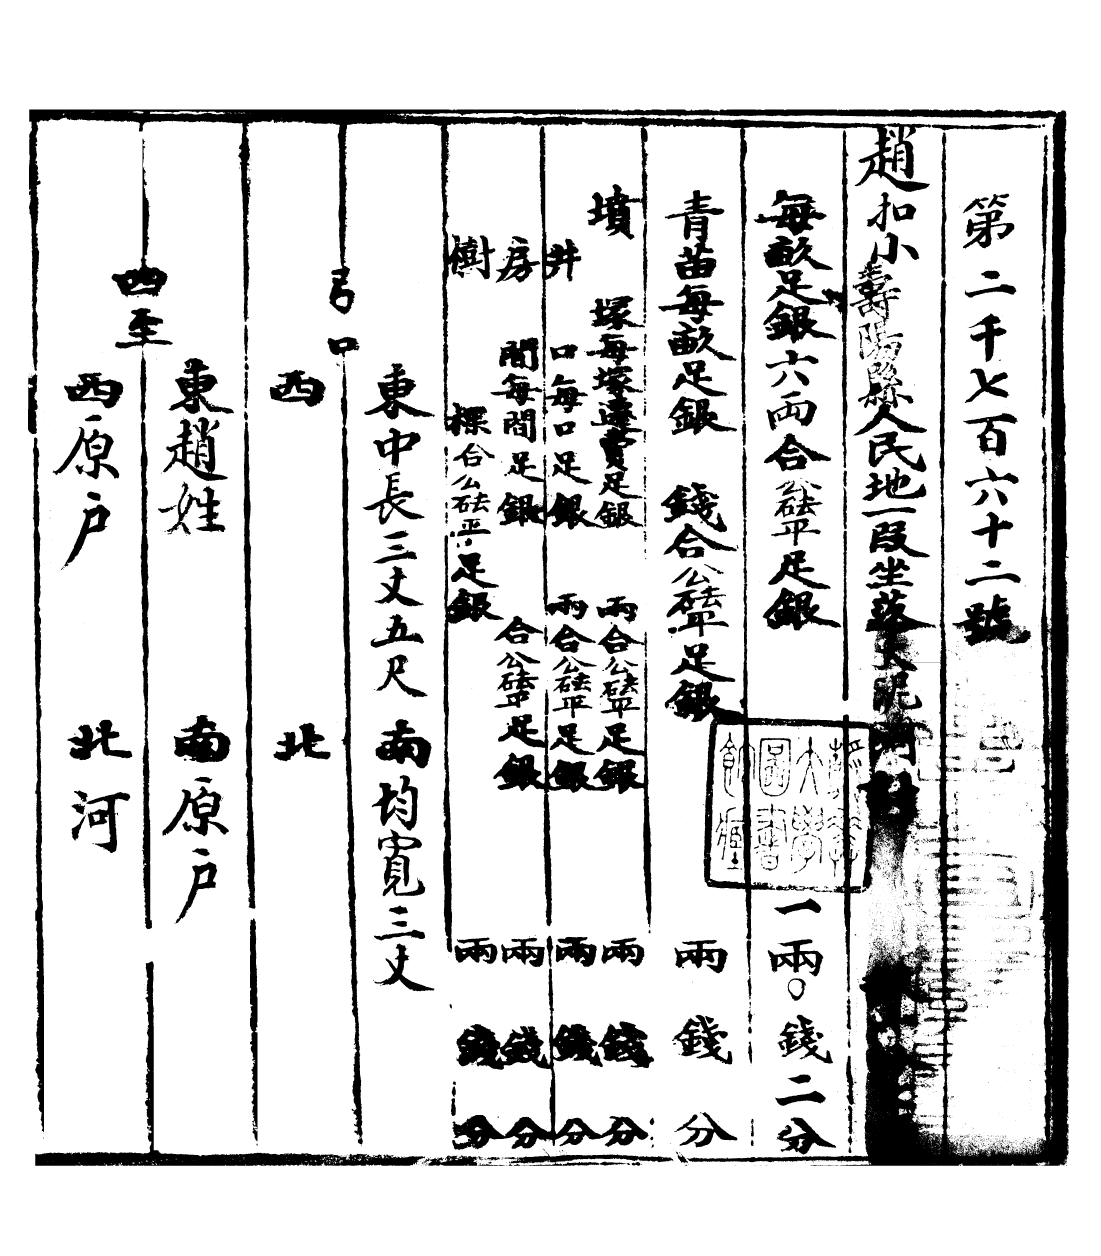 第二千七百六十二號
趙扣小壽陽縣人民地一段坐落大泥
每畝足銀六両合公砝平足銀一兩〇錢二分
青苗每畝足銀 錢合公砝平足銀 兩 錢 分
墳 塚每塚遷費足銀 兩合公砝平足銀 兩 錢 分
井 口每口足銀 兩合公砝平足銀 兩 錢 分
房 間每間足銀 合公砝平足銀 兩 錢 分
樹 棵合公砝平足銀 兩 錢 分
東中長三丈五尺 南均寬三丈
弓口
西 北
東趙姓 南原户
四至
西原户 北河